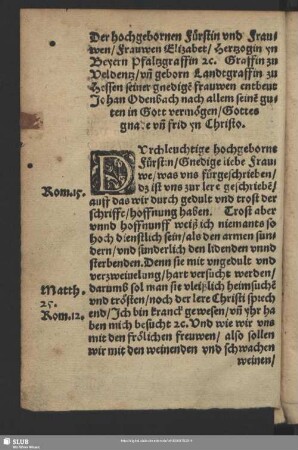 Der hochgebornen Fürstin vnd Frau-
wen/Frauwen Elizabet/Hertzogin yn
Beyern Pfaltzgraffin ꝛc. Graffin zu
Veldentz/vñ geborn Landtgraffin zu
Hessen seiner gnedigẽ frauwen entbeut
Johan Odenbach nach allem seinẽ gu-
ten in Gott vermögen/Gottes
gnade vñ frid yn Christo.
DVrchleuchtige hochgeborne
Fürstin/Gnedige liebe Frau
we/was vns fürgeschrieben/
Rom.15.
dz ist vns zur lere geschriebẽ/
auff das wir durch gedult vnd trost der
schrifft/hoffnung haben. Trost aber
vnnd hoffnunff weiß ich niemants so
hoch dienstlich sein/als den armen sun-
dern/vnd sunderlich den lidenden vnnd
sterbenden. Denn sie mit vngedult vnd
verzweiuelung/hart versucht werden/
Matth.
25.
darumb sol man sie vleißlich heimsuchẽ
vnd trösten/noch der lere Christi sprech
Rom.12.
end/Ich bin kranck gewesen/vñ yhr ha
ben mich besucht ꝛc. Vnd wie wir vns
mit den frölichen freuwen/also sollen
wir mit den weinenden vnd schwachen
weinen/
SLUB